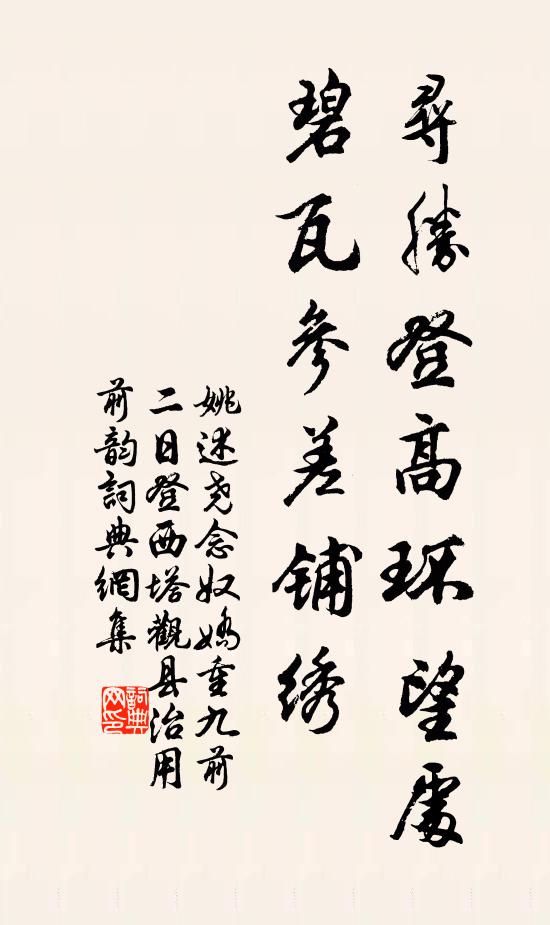 尋勝登高环望處
碧瓦參差铺绣
姚述尧念奴嬌重九前
二日登西塔觀县治用
前韵詞典網集
詞典
网印